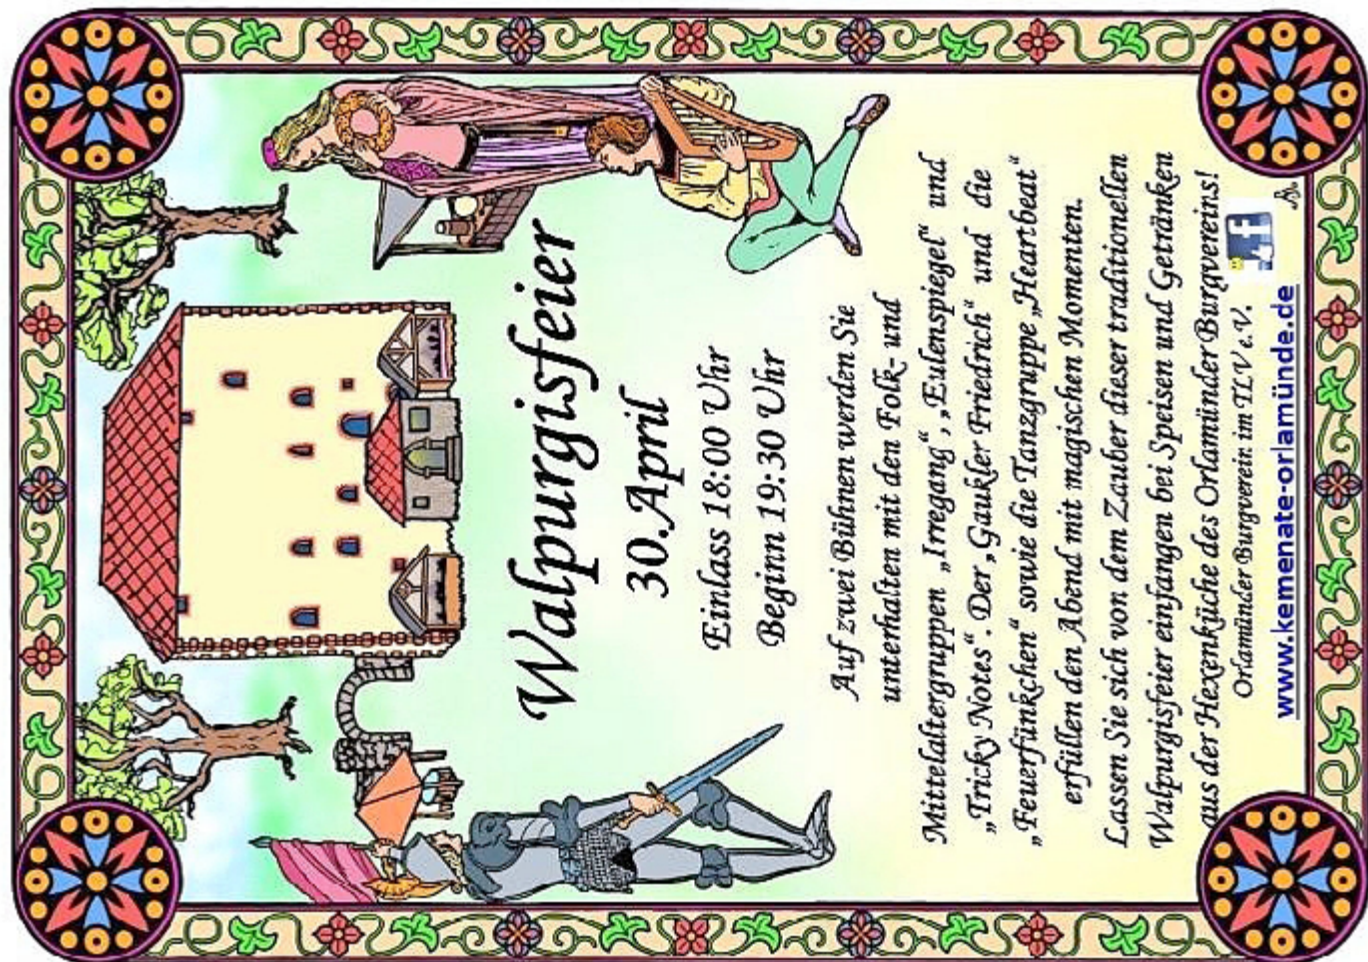 Walpurgisfeier
30.April
Einlass 18:00 Uhr
Beginn 19:30 Uhr
Auf zwei Bühnen werden Sie
unterhalten mit den Folk- und
Mittelaltergruppen „Irregang“, „Eulenspiegel“ und
„Tricky Notes“. Der „Gaukler Friedrich“ und die
„Feuerfünkchen“ sowie die Tanzgruppe „Heartbeat“
erfüllen den Abend mit magischen Momenten.
Lassen Sie sich von dem Zauber dieser traditionellen
Walpurgisfeier einfangen bei Speisen und Getränken
aus der Hexenküche des Orlamünder Burgvereins!
Orlamünder Burgverein im TLV e.V.
www.kemenate-orlamünde.de
f